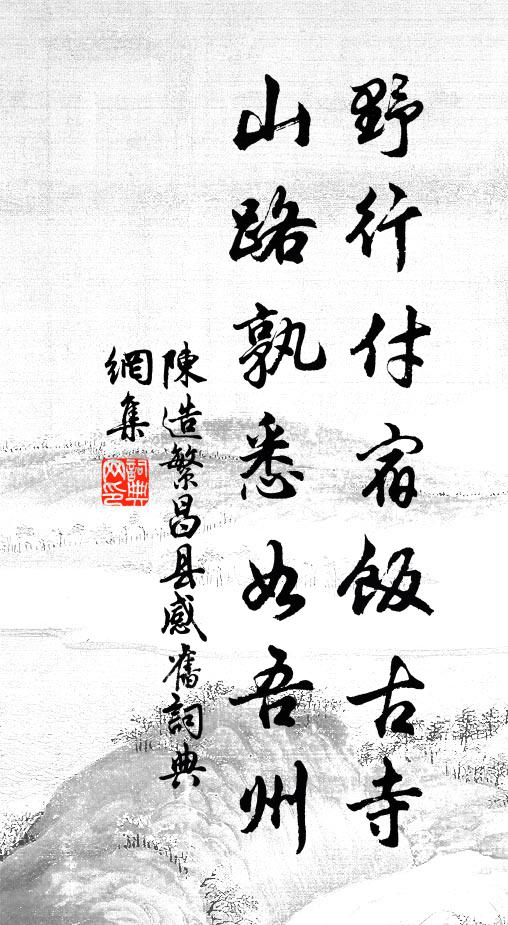 野行付宿飯古寺
山路孰悉如吾州
陳造繁昌县感舊詞典
網集
詞典網印